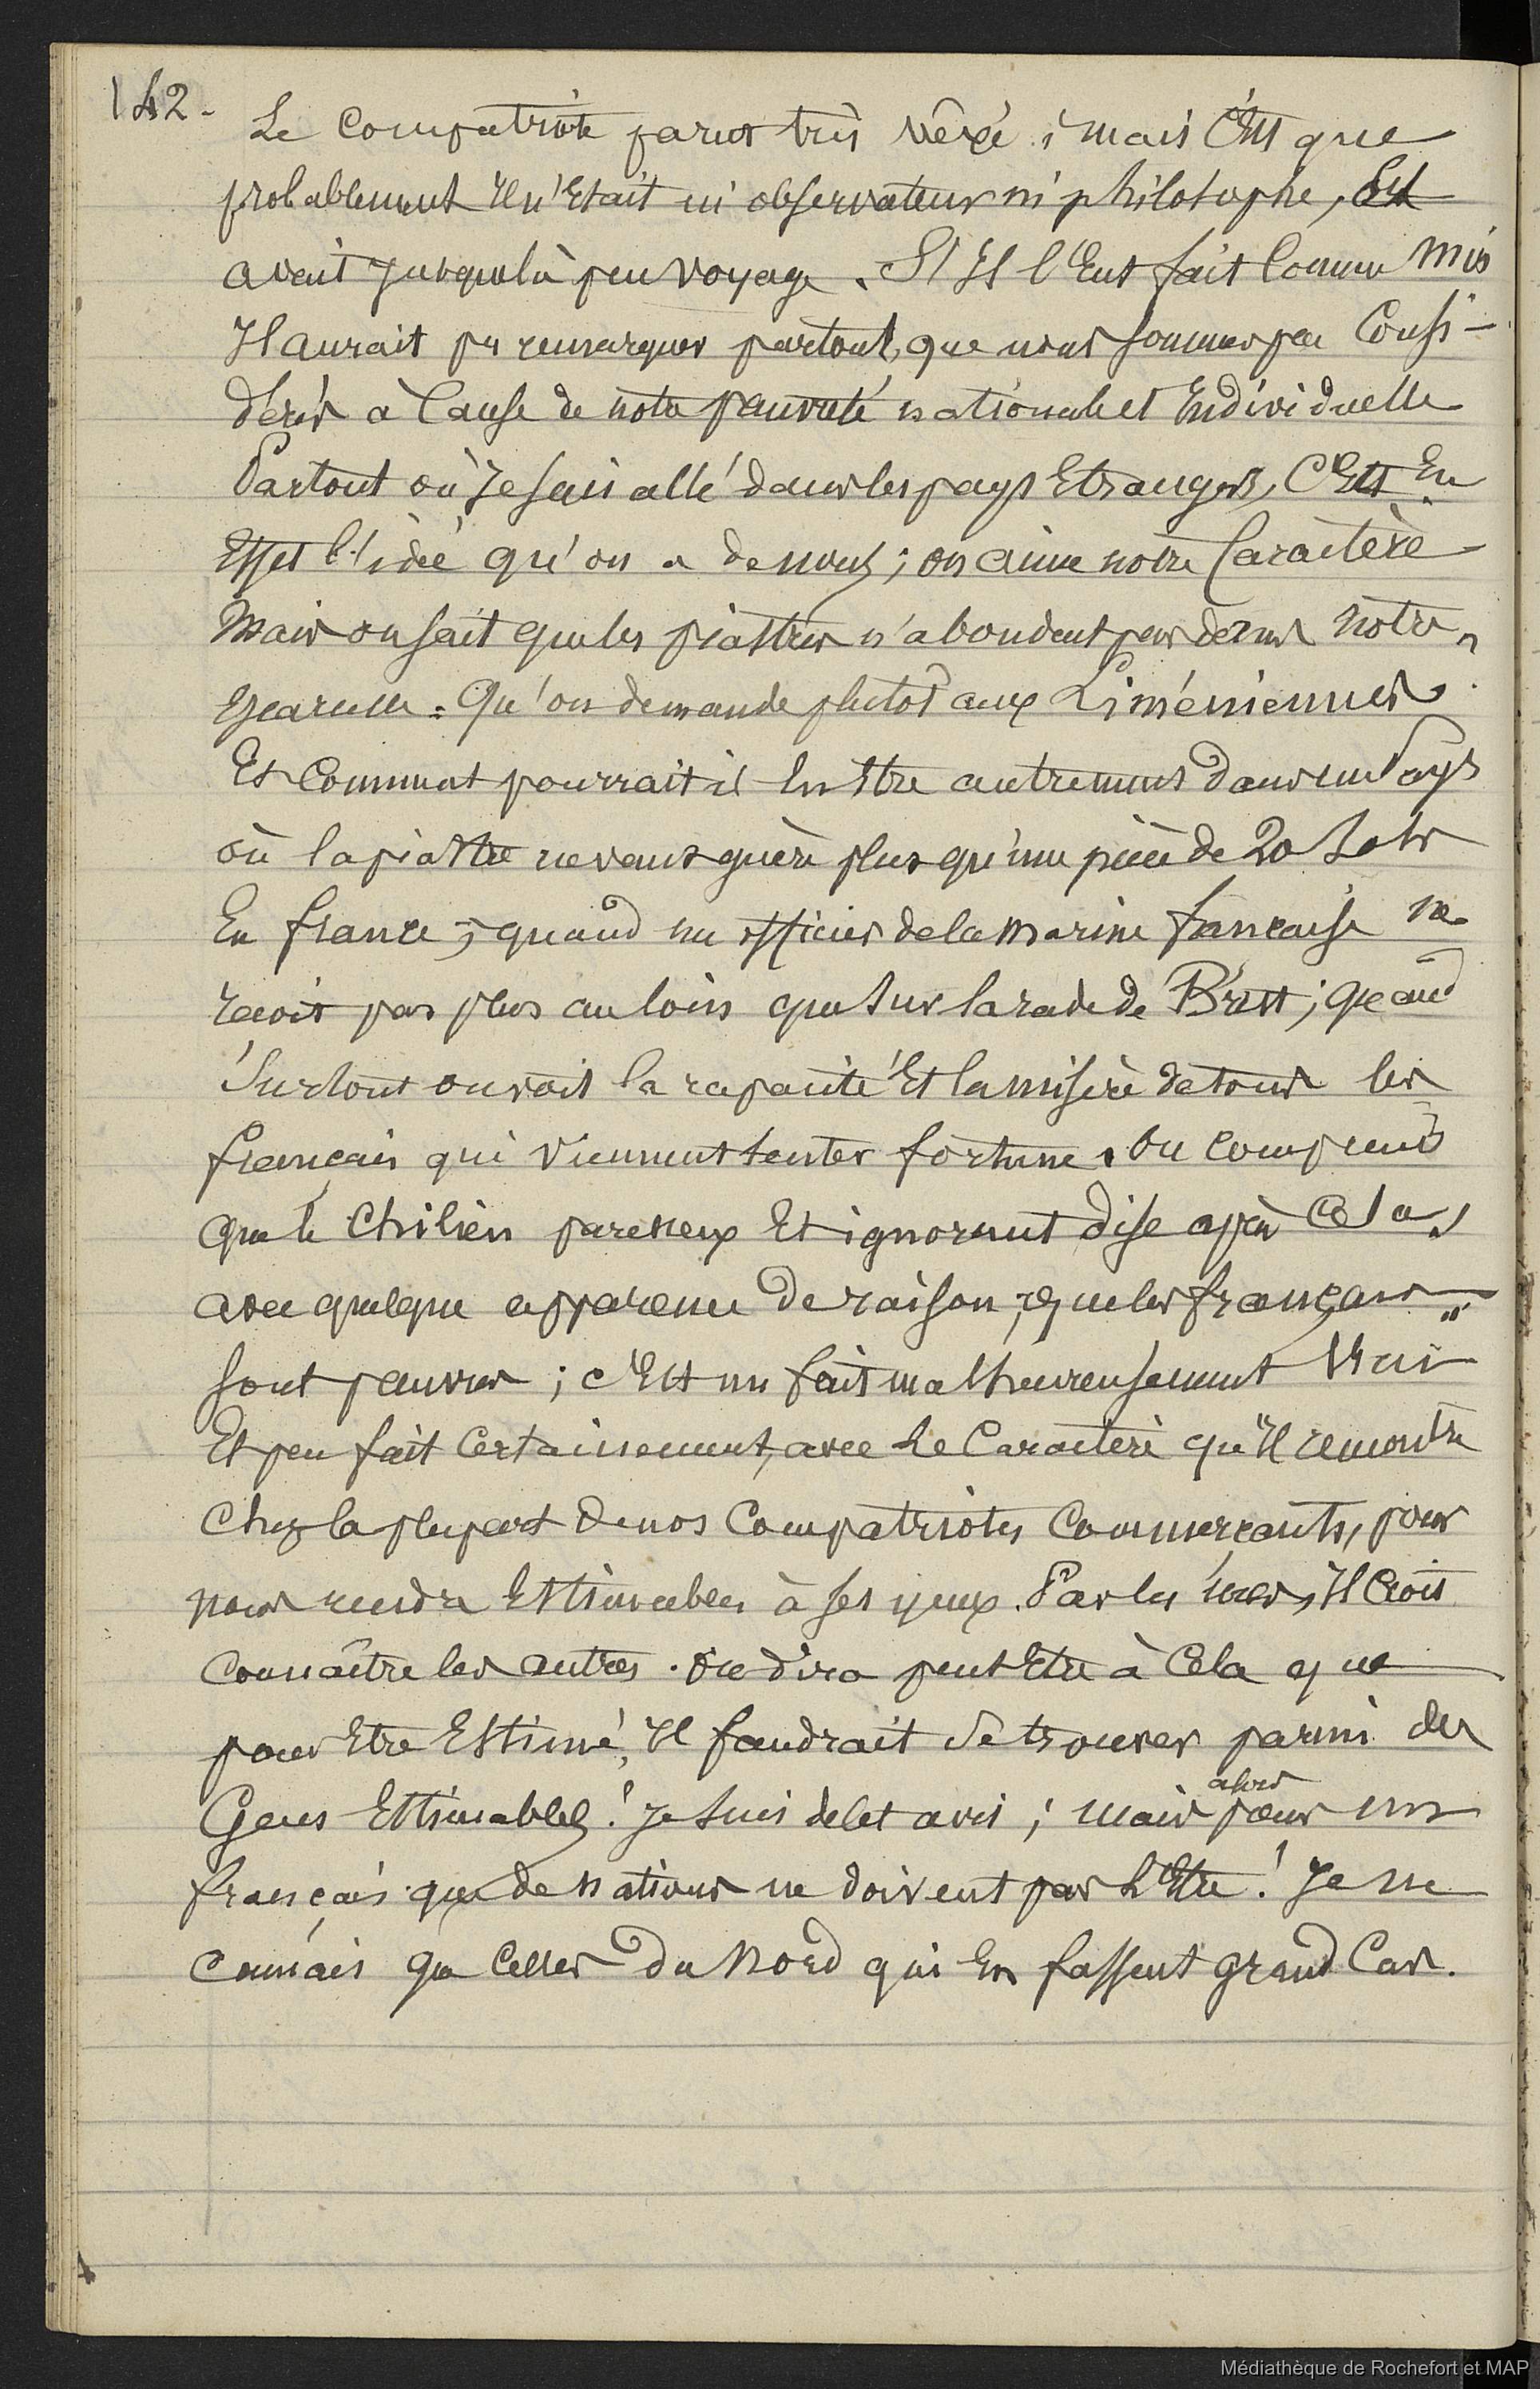 142-
Le compatriote parut très vêxé ; mais c'Est que
probablement Il n'Etait ni observateur ni philosophe, Et
avait Jusque là peu voyagé. S'Il l'Eut fait comme moi
Il aurait pu remarquer partout, que nous sommes peu Consi-
dérés à Cause de notre pauvreté nationale et Individuelle
Partout où Je suis allé dans les pays Etrangers, C'Est En
Effet l'idée qu'on a de nous ; on aime notre Caractère
Mais on sait que les piastres n'abondent pas dans notre
Escarcelle. Qu'on demande plutôt aux Liméniennes
Et Comment pourrait il En Etre autrement dans un Pays
où la piastre ne vaut guère plus qu'une pièce de 20 Sols
En france ; quand un officier de la Marine française ne
recoit pas plus au loin que sur la rade de Brest ; quand
Surtout on voit la rapacité Et la misère de tous les
français qui viennent tenter fortune. On comprend
que le Chilien paresseux Et ignorant dise après Cela,
avec quelque apparence de raison, que les français
sont pauvres ; c'Est un fait malheureusement Vrai
Et peu fait Certainement, avec le Caractère qu'Il remontre
Chez la plupart de nos Compatriotes Commerçants, pour
nous rendre Estimables à ses yeux. Par les uns, Il Croit
Connaître les autres. On dira peut Etre à Cela que
pour Etre Estimé, Il faudrait se trouver parmi des
Gens Estimables ! Je suis de cet avis ; mais
alors
pour un
français que de nations ne doivent pas l'Etre ! Je ne
connais que Celles du Nord qui En fassent grand Cas.
Médiathèque de Rochefort et MAP